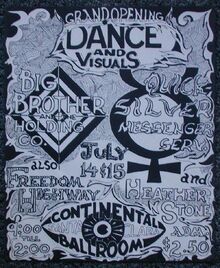 GRAND OPENING
DANCE
AND
VISUALS
BIG
BROTHER
AND THE
HOLDING
CO.
QUICK
SILVER
MESSENGER
SERV.
JULY
14 & 15
also
FREEDOM
HIGHWAY
and
HEATHER
STONE
9:00
TILL
2:00
CONTINENTAL
BALLROOM
SANTA CLARA
ADM.
$2.50